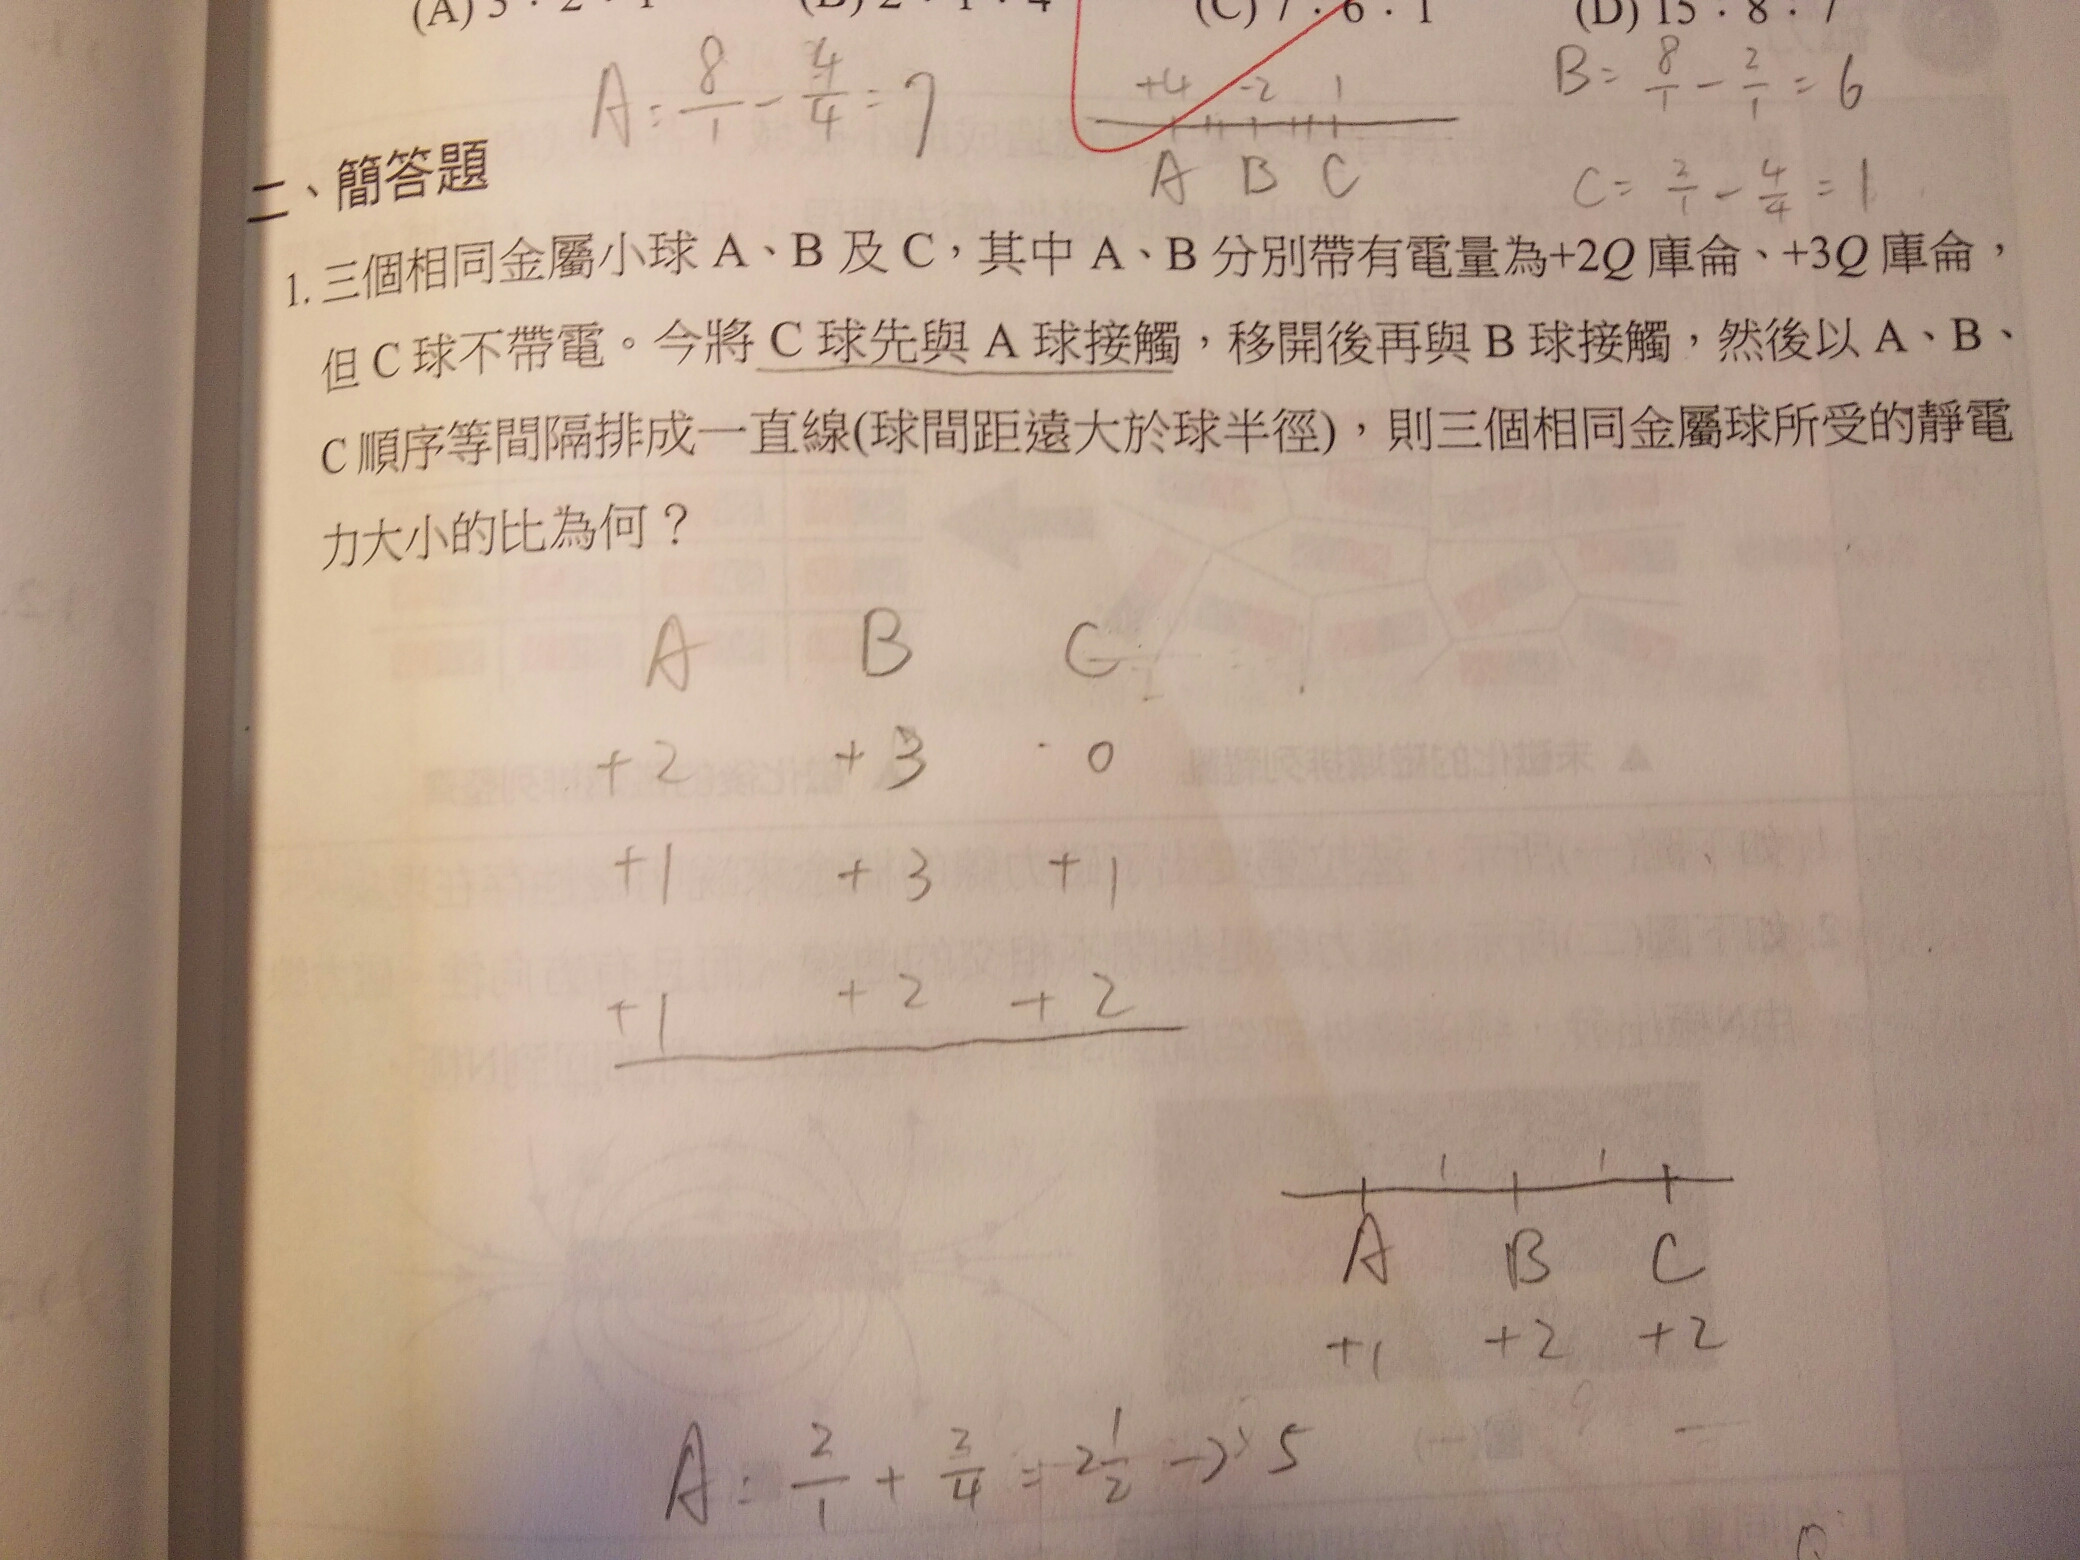 (A) 3：2：1 (B) 2：1：4 (C) 7：6：1 (D) 15：8：7
A = 8/1 - 4/4 = 7
+4 -2 1
A B C
B = 8/1 - 2/1 = 6
C = 2/1 - 4/4 = 1
二、簡答題
1. 三個相同金屬小球 A、B 及 C，其中 A、B 分別帶有電量為+2Q 庫侖、+3Q 庫侖，
但 C 球不帶電。今將 C 球先與 A 球接觸，移開後再與 B 球接觸，然後以 A、B、
C 順序等間隔排成一直線(球間距遠大於球半徑)，則三個相同金屬球所受的靜電
力大小的比為何？
A B C
+2 +3 0
+1 +3 +1
+1 +2 +2
1 1
A B C
+1 +2 +2
A = 2/1 + 2/4 = 2 1/2 → 5